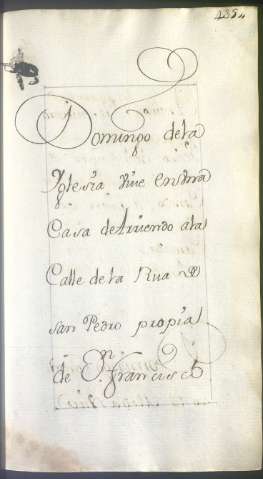 435
Domingo dela
Yglesia Vive en Una
Casa de Arriendo ala
Calle de la Rua de
san Pedro propia
de Dn. Francisco